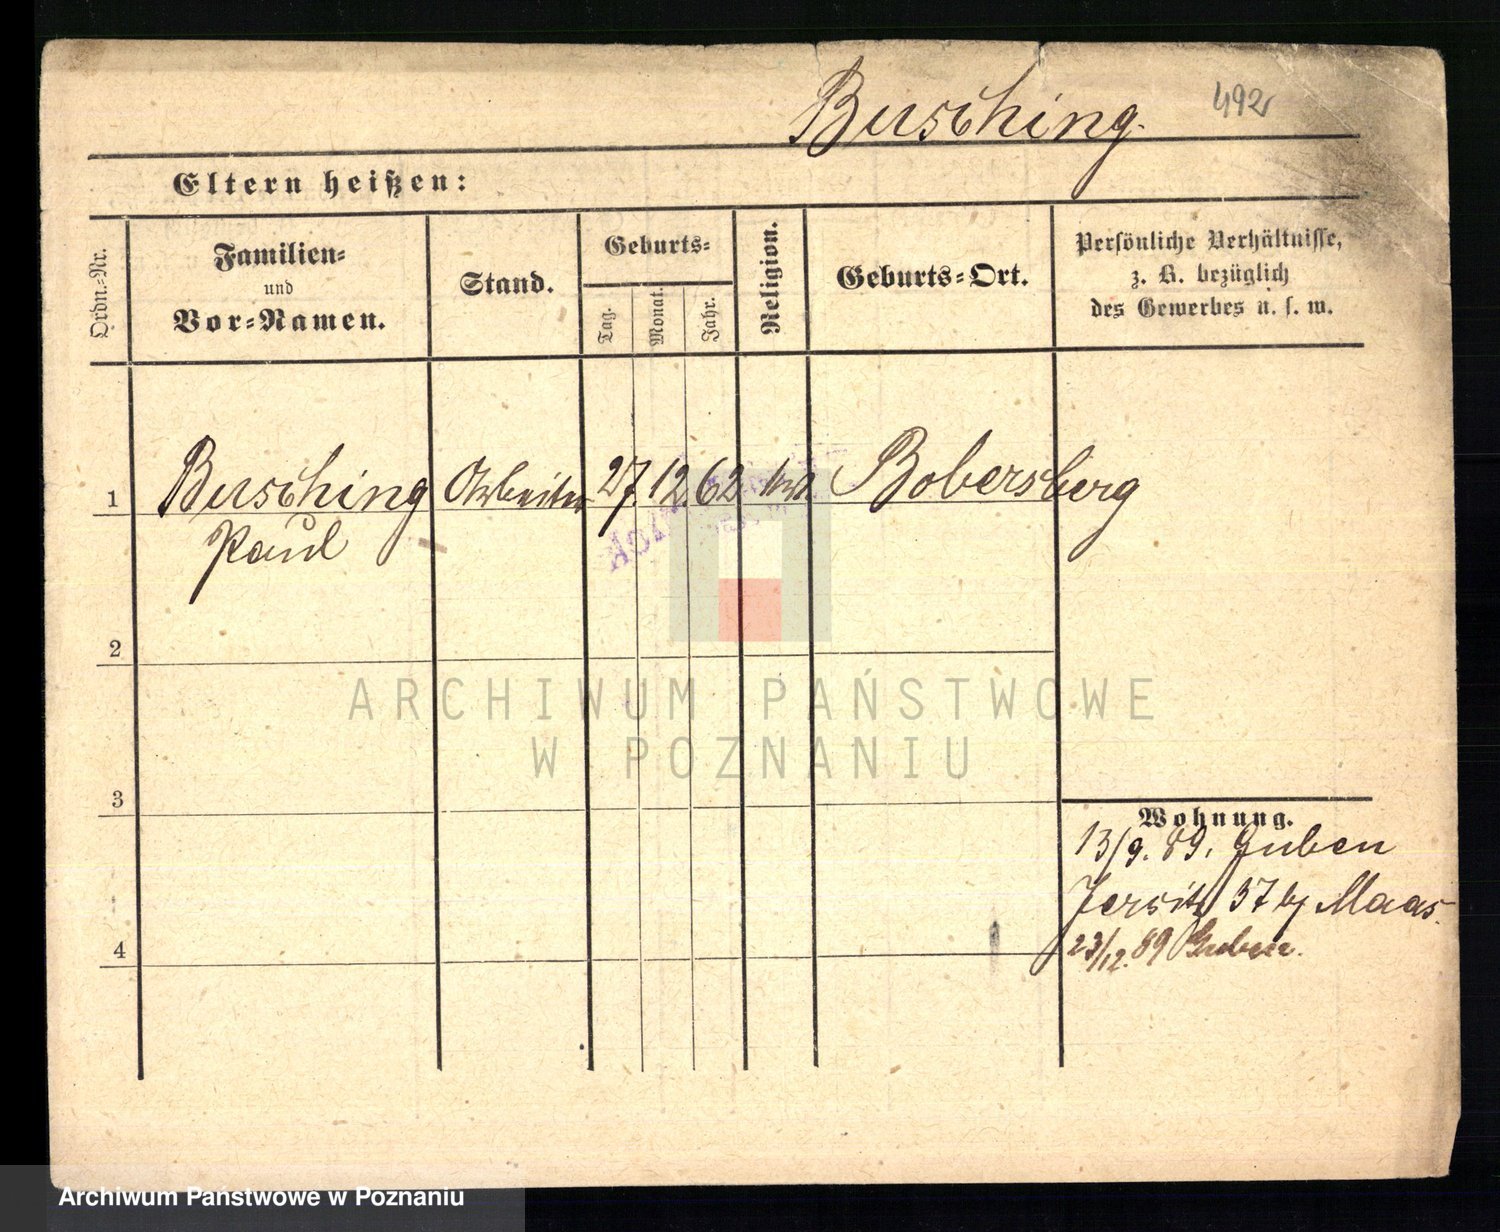 Busching 492
Eltern heißen:
Ordn.-Nr.
Familien-
und
Vor-Namen.
Stand.
Geburts-
Tag.
Monat.
Jahr.
Religion.
Geburts-Ort.
Persönliche Verhältnisse,
z. B. bezüglich
des Gewerbes u. s. w.
1 Busching Arbeiter 27. 12 62 Bobersberg
Paul
2
3
4
Wohnung.
13/9. 89. Guben
Jersitz 57 Maas
23/12. 89 Guben.
ARCHIWUM PAŃSTWOWE
W POZNANIU
Archiwum Państwowe w Poznaniu